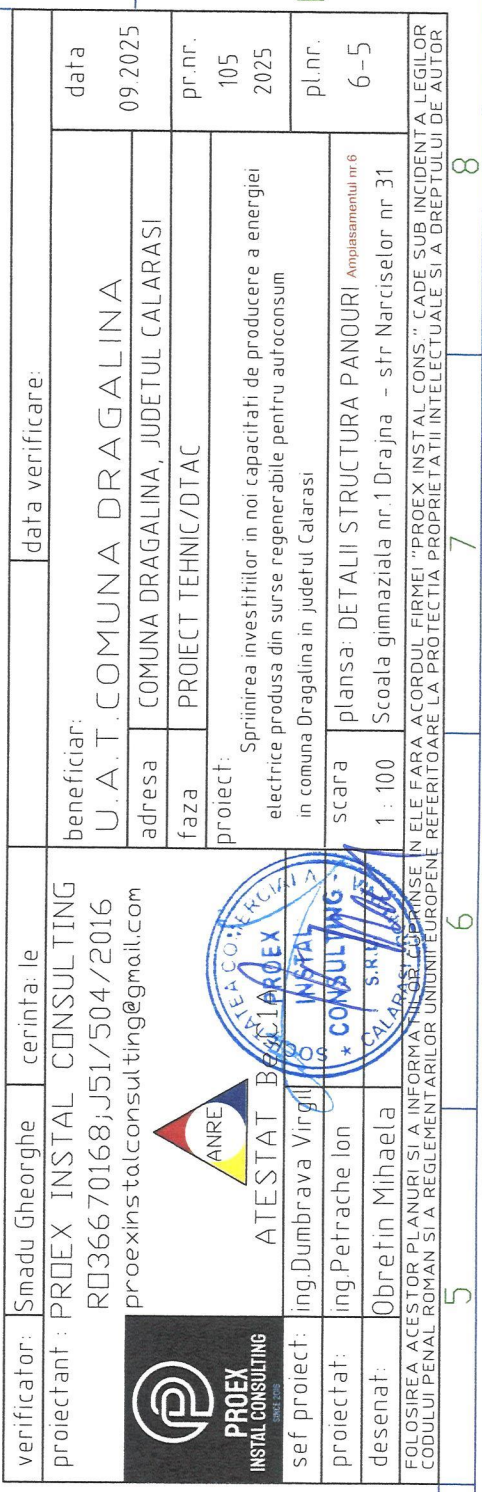 verificator: Smadu Gheorghe cerinta: Ie data verificare:
proiectant : PROEX INSTAL CONSULTING
RO36670168;J51/504/2016
proexinstalconsulting@gmail.com
PROEX
INSTAL CONSULTING
SINCE 2016
ANRE
ATESTAT
sef proiect: ing.Dumbrava Virgil
proiectat: ing.Petrache Ion
desenat: Obretin Mihaela
SOCIETATEA COMERCIALA
PROEX
INSTAL
CONSULTING
S.R.L.
CALARASI
beneficiar:
U.A.T.COMUNA DRAGALINA
adresa COMUNA DRAGALINA, JUDETUL CALARASI
faza PROIECT TEHNIC/DTAC
proiect:
Spriinirea investitiilor in noi capacitati de producere a energiei
electrice produsa din surse regenerabile pentru autoconsum
in comuna Dragalina in judetul Calarasi
scara
1 : 100
plansa: DETALII STRUCTURA PANOURI Amplasamentul nr.6
Scoala gimnaziala nr.1 Drajna - str Narciselor nr 31
data
09.2025
pr.nr.
105
2025
pl.nr.
6-5
FOLOSIREA ACESTOR PLANURI SI A INFORMATIILOR CUPRINSE IN ELE FARA ACORDUL FIRMEI "PROEX INSTAL CONS." CADE SUB INCIDENTA LEGILOR
CODULUI PENAL ROMAN SI A REGLEMENTARILOR UNIUNII EUROPENE REFERITOARE LA PROTECTIA PROPRIETATII INTELECTUALE SI A DREPTULUI DE AUTOR
5 6 7 8